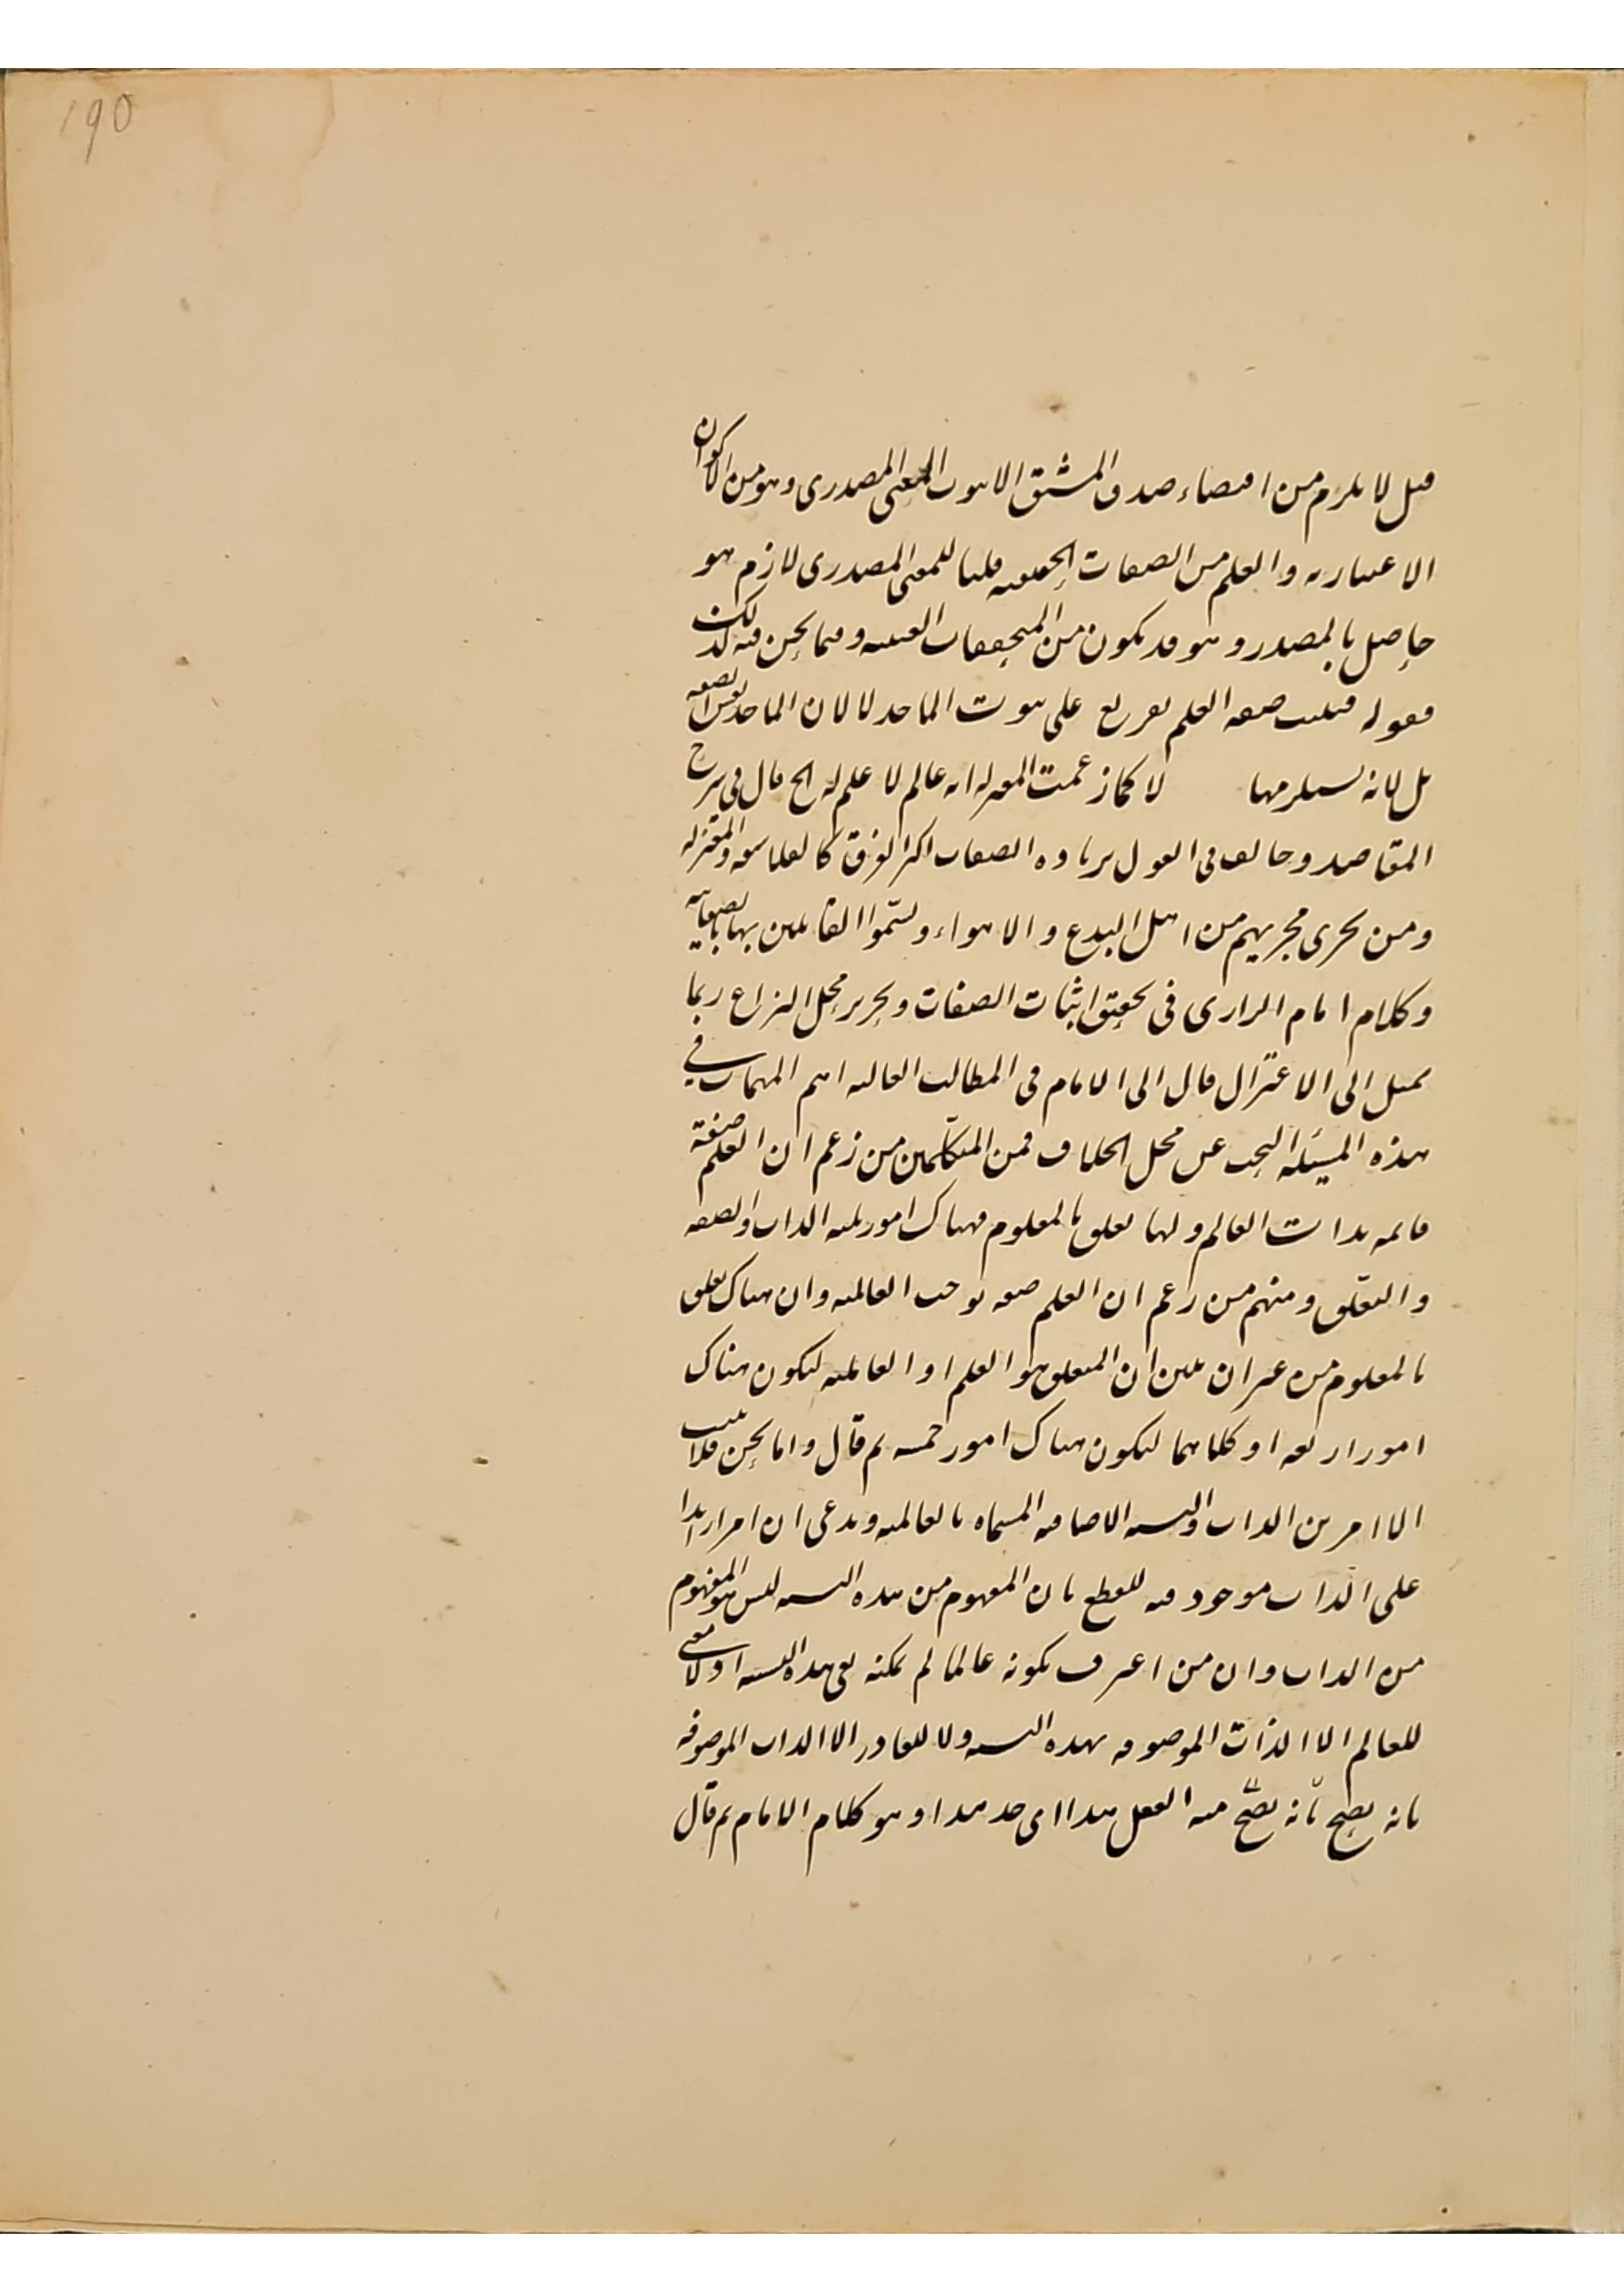 ١٩٥
قيل لا يلزم من اقتضاء صدق المشتق الا ثبوت المعنى المصدرى وهو من الاكوان
الاعتباريه والعلم من الصفات الحقيقيه قلنا للمعنى المصدرى لازم هو
حاصل بالمصدر وهو قد يكون من المتحققات العينيه وفيما نحن فيه كذلك
فقوله فيثبت صفه العلم تفريع على ثبوت الماخذ لا لان الماخذ نفس الصفه
بل لانه يستلزمها لا كما زعمت المعتزله انه عالم لا علم له الخ قال فى شرح
المقاصد وخالف فى القول بزياده الصفات اكثر الفرق كالفلاسفه والمعتزله
ومن يجرى مجريهم من اهل البدع والاهواء وسمّوا القائلين بها بالصفاتيه
وكلام امام الرازى فى تحقيق اثبات الصفات وتحرير محل النزاع ربما
يميل الى الاعتزال قال الى الامام فى المطالب العاليه اهم المهمات فى
هذه المسئله البحث عن محل الخلاف فمن المتكلّمين من زعم ان العلم صفة
قائمه بذات العالم ولها تعلق بالمعلوم فهناك امور ثلثه الذات والصفه
والتعلّق ومنهم من زعم ان العلم صفه توجب العالميه وان هناك تعلق
بالمعلوم من غير ان يبين ان المتعلق هو العلم او العالميه ليكون هناك
امور اربعه او كلاهما ليكون هناك امور خمسه ثم قال واما نحن فلا نثبت
الا امرين الذات والنسبه الاضافيه المسماه بالعالميه وندعى ان امرا زايدا
على الذات موجود فيه للقطع بان المفهوم من هذه النسبه ليس هو المفهوم
من الذات وان من اعترف بكونه عالما لم يمكنه نفى هذه النسبه اذ لا معنى
للعالم الا الذات الموصوفه بهذه النسبه ولا للقادر الا الذات الموصوفه
بانه يصح بانه يصحّ منه الفعل هذا اى خذ هذا وهو كلام الامام ثم قال